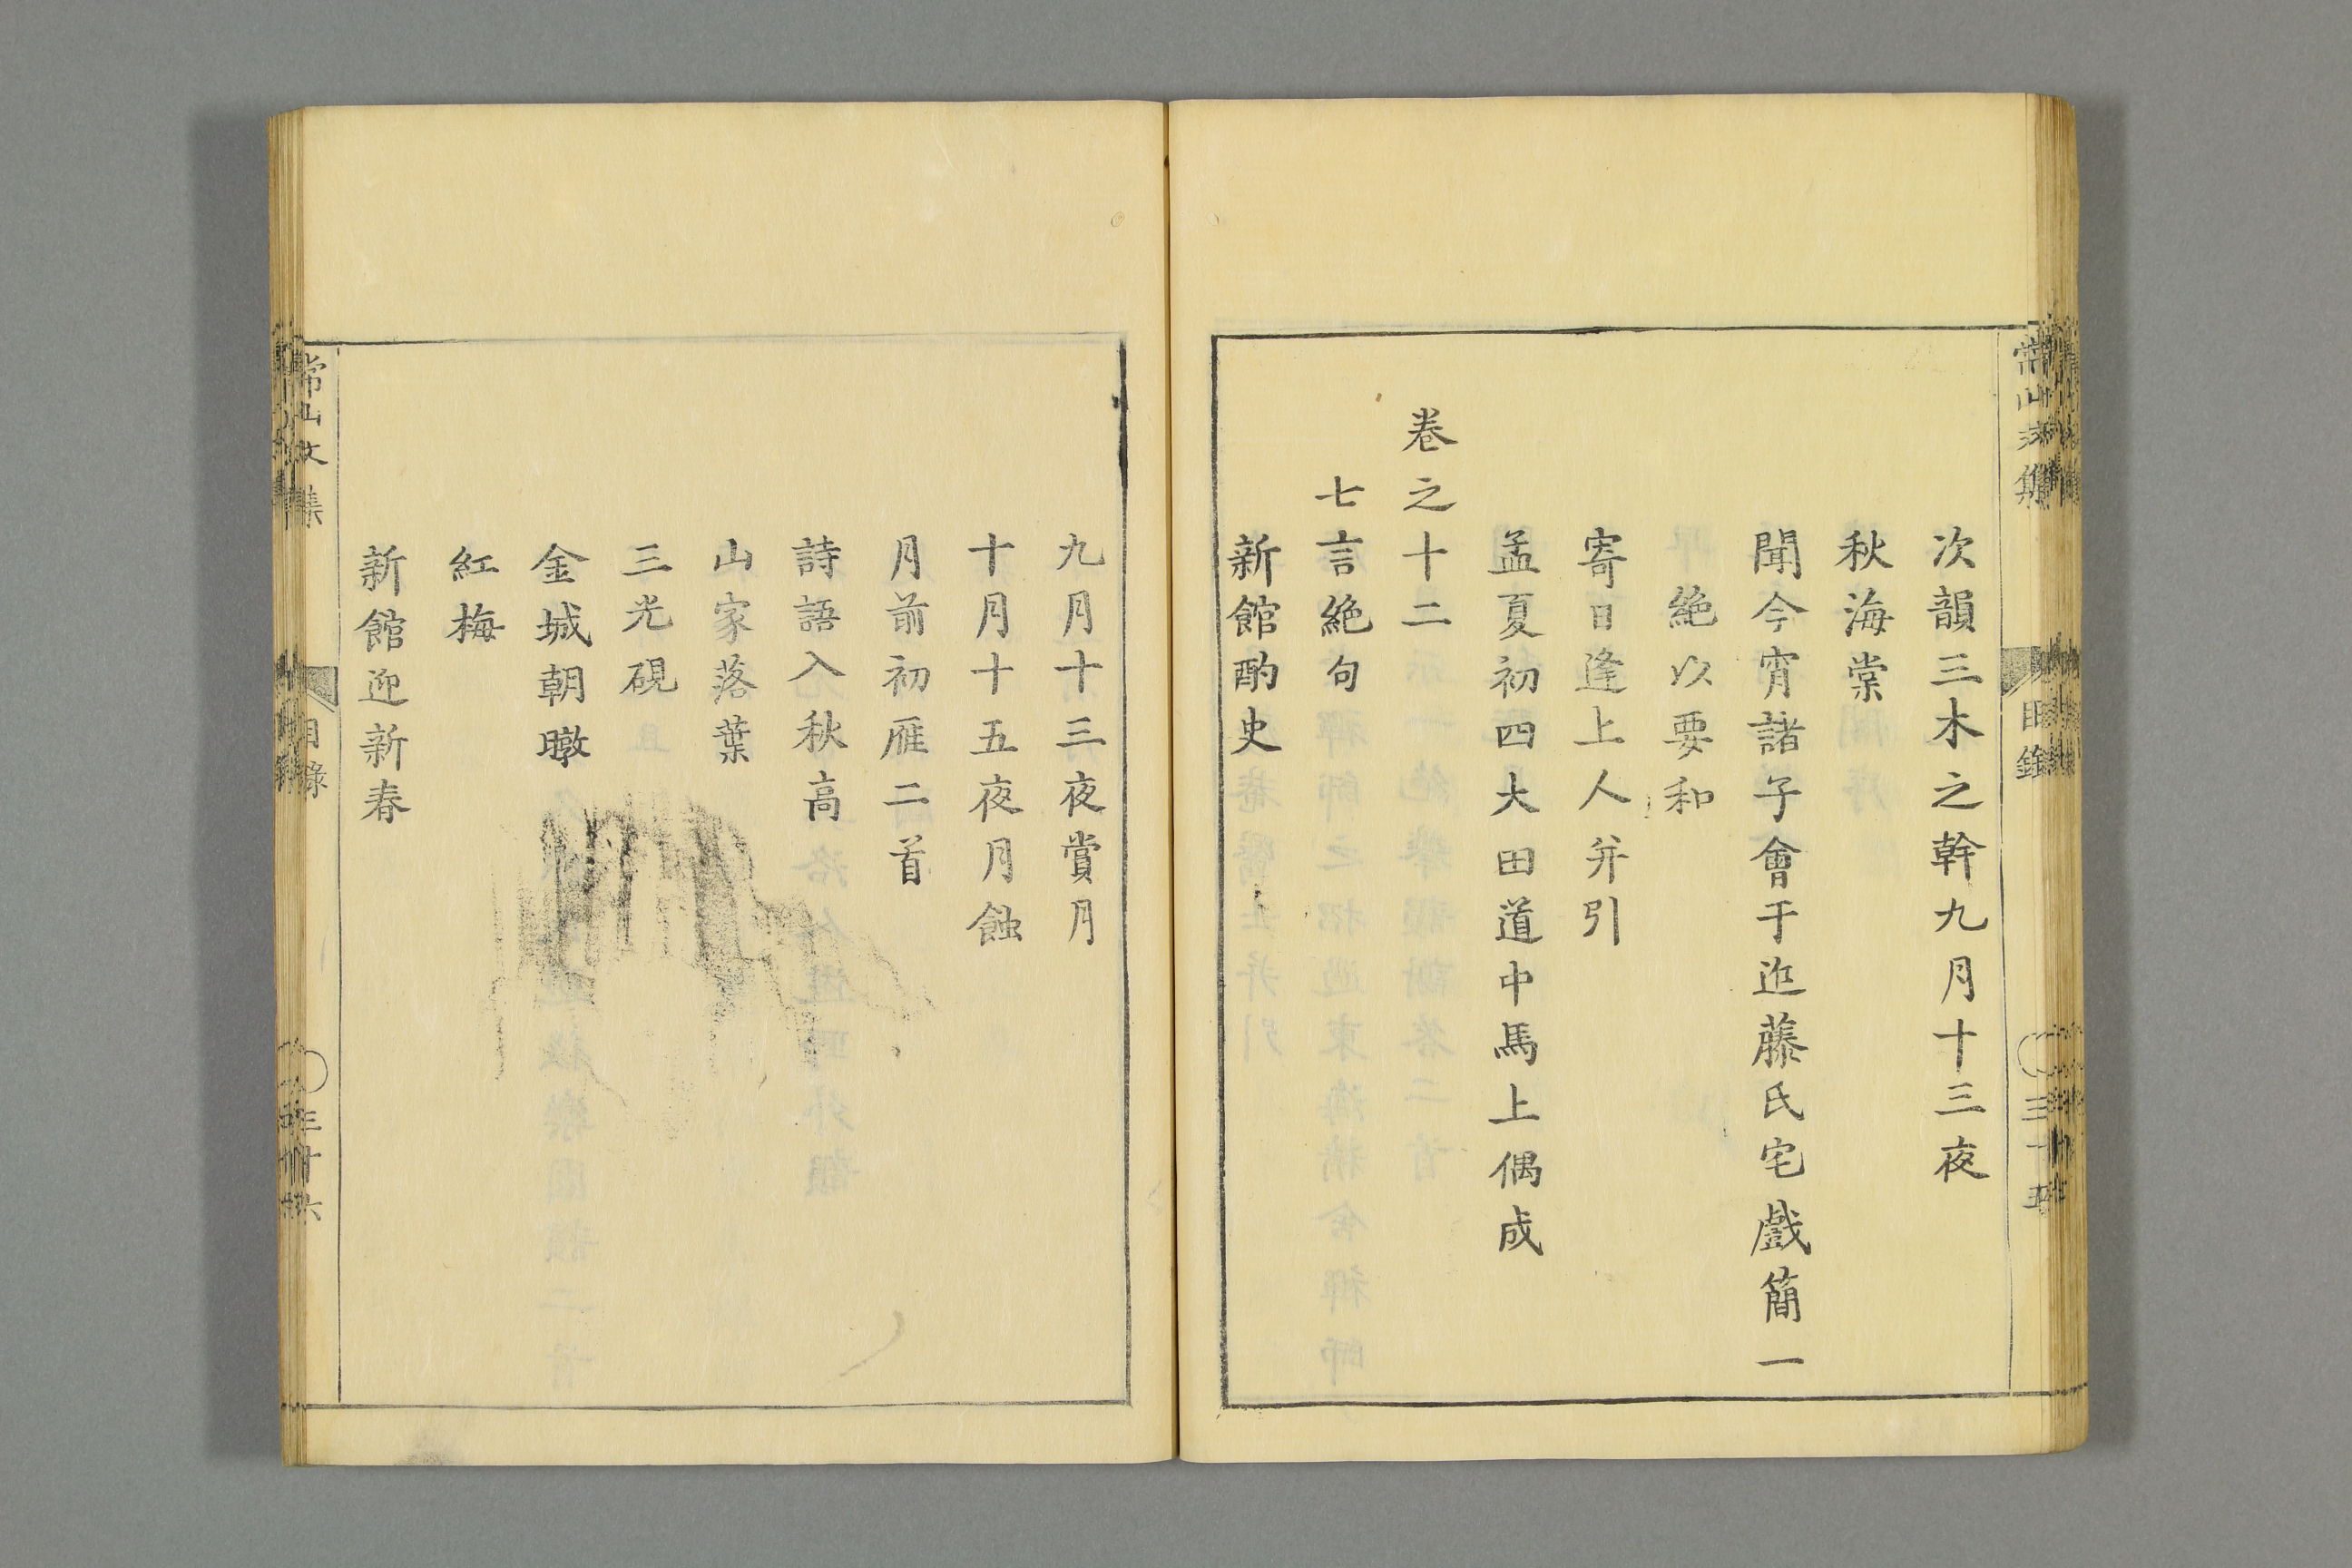 常山文集
目錄
三十五
次韻三木之幹九月十三夜
秋海棠
聞今宵諸子會于迩藤氏宅戲簡一
絶以要和
寄日逢上人并引
孟夏初四大田道中馬上偶成
卷之十二
七言絶句
新館酌史
九月十三夜賞月
十月十五夜月蝕
月前初雁二首
詩語入秋高
山家落葉
三光硯
金城朝暾
紅梅
新館迎新春
常山文集
目錄
三十六